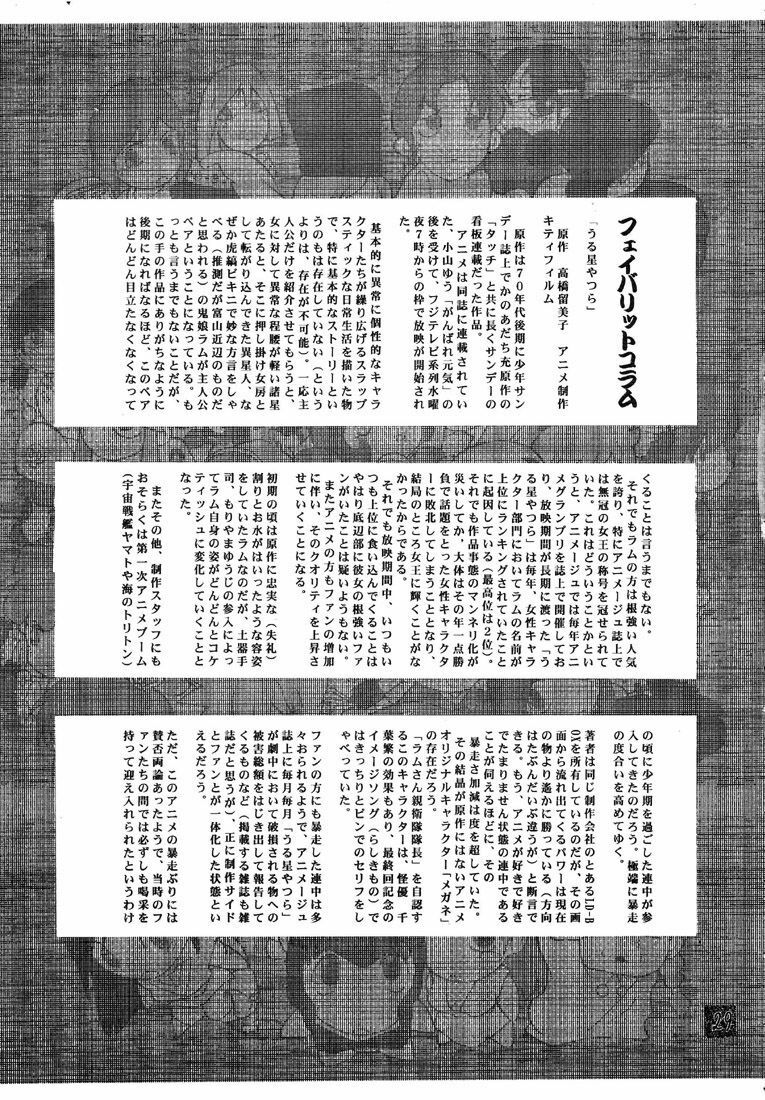 フェイバリットコラム
「うる星やつら」
原作　高橋留美子　アニメ制作
キティフィルム
原作は７０年代後期に少年サン
デー誌上でかのあだち充原作の
「タッチ」と共に長くサンデーの
看板連載だった作品。
アニメは同誌に連載されてい
た、小山ゆう「がんばれ元気」の
後を受けて、フジテレビ系列水曜
夜７時からの枠で放映が開始され
た。
基本的に異常に個性的なキャラ
クターたちが繰り広げるスラップ
スティックな日常生活を描いた物
で、特に基本的なストーリーとい
うのもは存在していない（という
よりは、存在が不可能）。一応主
人公だけを紹介させてもらうと、
女に対して異常な程腰が軽い諸星
あたると、そこに押し掛け女房と
して転がり込んできた異星人、な
ぜか虎縞ビキニで妙な方言をしゃ
べる（推測だが富山近辺のものだ
と思われる）の鬼娘ラムが主人公
ペアということになっている。も
っとも言うまでもないことだが、
この手の作品にありがちなように
後期になればなるほど、このペア
はどんどん目立たなくなくなって
くることは言うまでもない。
それでもラムの方は根強い人気
を誇り、特にアニメージュ誌上で
は無冠の女王の称号を冠せられて
いた。これはどういうことかとい
うと、アニメージュでは毎年アニ
メグランプリを誌上で開催してお
り、放映期間が長期に渡った「う
る星やつら」は毎年、女性キャラ
クター部門においてラムの名前が
上位にランキングされていたこと
に起因している（最高位は２位）。
それでも作品事態のマンネリ化が
災いしてか、大体はその年一点勝
負で話題をとった女性キャラクタ
ーに敗北してしまうこととなり、
結局のところ女王に輝くことがな
かったからである。
それでも放映期間中、いつもい
つも上位に食い込んでくることは
やはり底辺部に彼女の根強いファ
ンがいたことは疑いようもない。
またアニメの方もファンの増加
に伴い、そのクオリティを上昇さ
せていくことになる。
初期の頃は原作に忠実な（失礼）
割りとお水がはいったような容姿
をしていたラムなのだが、土器手
司、もりやまゆうじの参入によっ
てラム自身の姿がどんどんとコケ
ティッシュに変化していくことと
なった。
またその他、制作スタッフにも
おそらくは第一次アニメブーム
（宇宙戦艦ヤマトや海のトリトン）
の頃に少年期を過ごした連中が参
入してきたのだろう。極端に暴走
の度合いを高めてゆく。
著者は同じ制作会社のとあるLD-B
OXを所有しているのだが、その画
面から流れ出てくるパワーは現在
の物より遥かに勝っている（方向
はたぶんだいぶ違うが）と断言で
きる。もう、アニメが好きで好き
でたまりません状態の連中である
ことが伺えるほどに、その
暴走さ加減は度を超していた。
その結晶が原作にはないアニメ
オリジナルキャラクター「メガネ」
の存在だろう。
「ラムさん親衛隊隊長」を自認す
るこのキャラクターは、怪優　千
葉繁の効果もあり、最終回記念の
イメージソング（らしきもの）で
はきっちりとピンでのセリフをし
ゃべっていた。
ファンの方にも暴走した連中は多
々おられるようで、アニメージュ
誌上に毎月毎月「うる星やつら」
が劇中において破損される物への
被害総額をはじき出して報告して
くるものなど（掲載する雑誌も雑
誌だと思うが）、正に制作サイド
とファンとが一体化した状態とい
えるだろう。
ただ、このアニメの暴走ぶりには
賛否両論あったようで、当時のフ
ァンたちの間では必ずしも喝采を
持って迎え入れられたというわけ
29